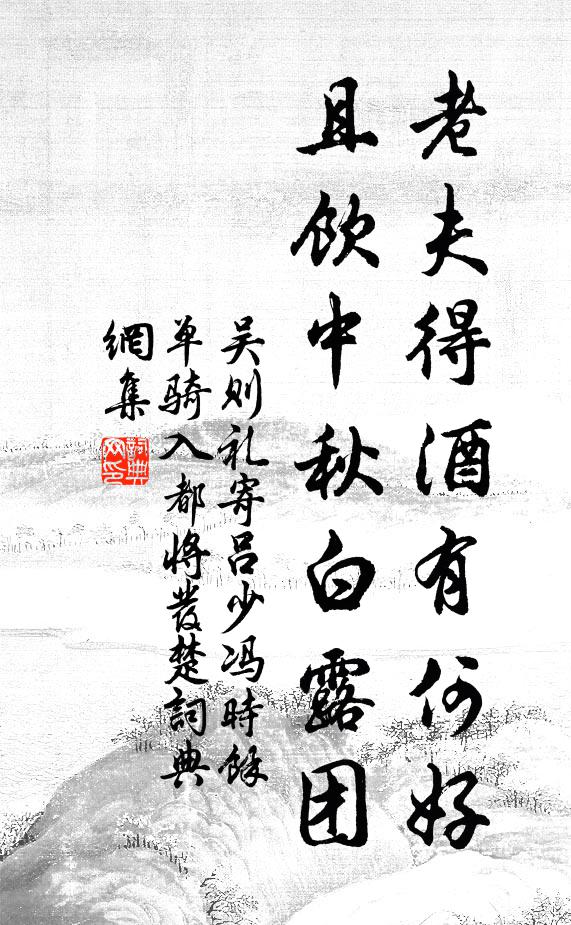 老夫得酒有何好
且饮中秋白露团
吴则礼寄吕少冯时馀
单骑入都将发楚詞典
網集
詞典網印